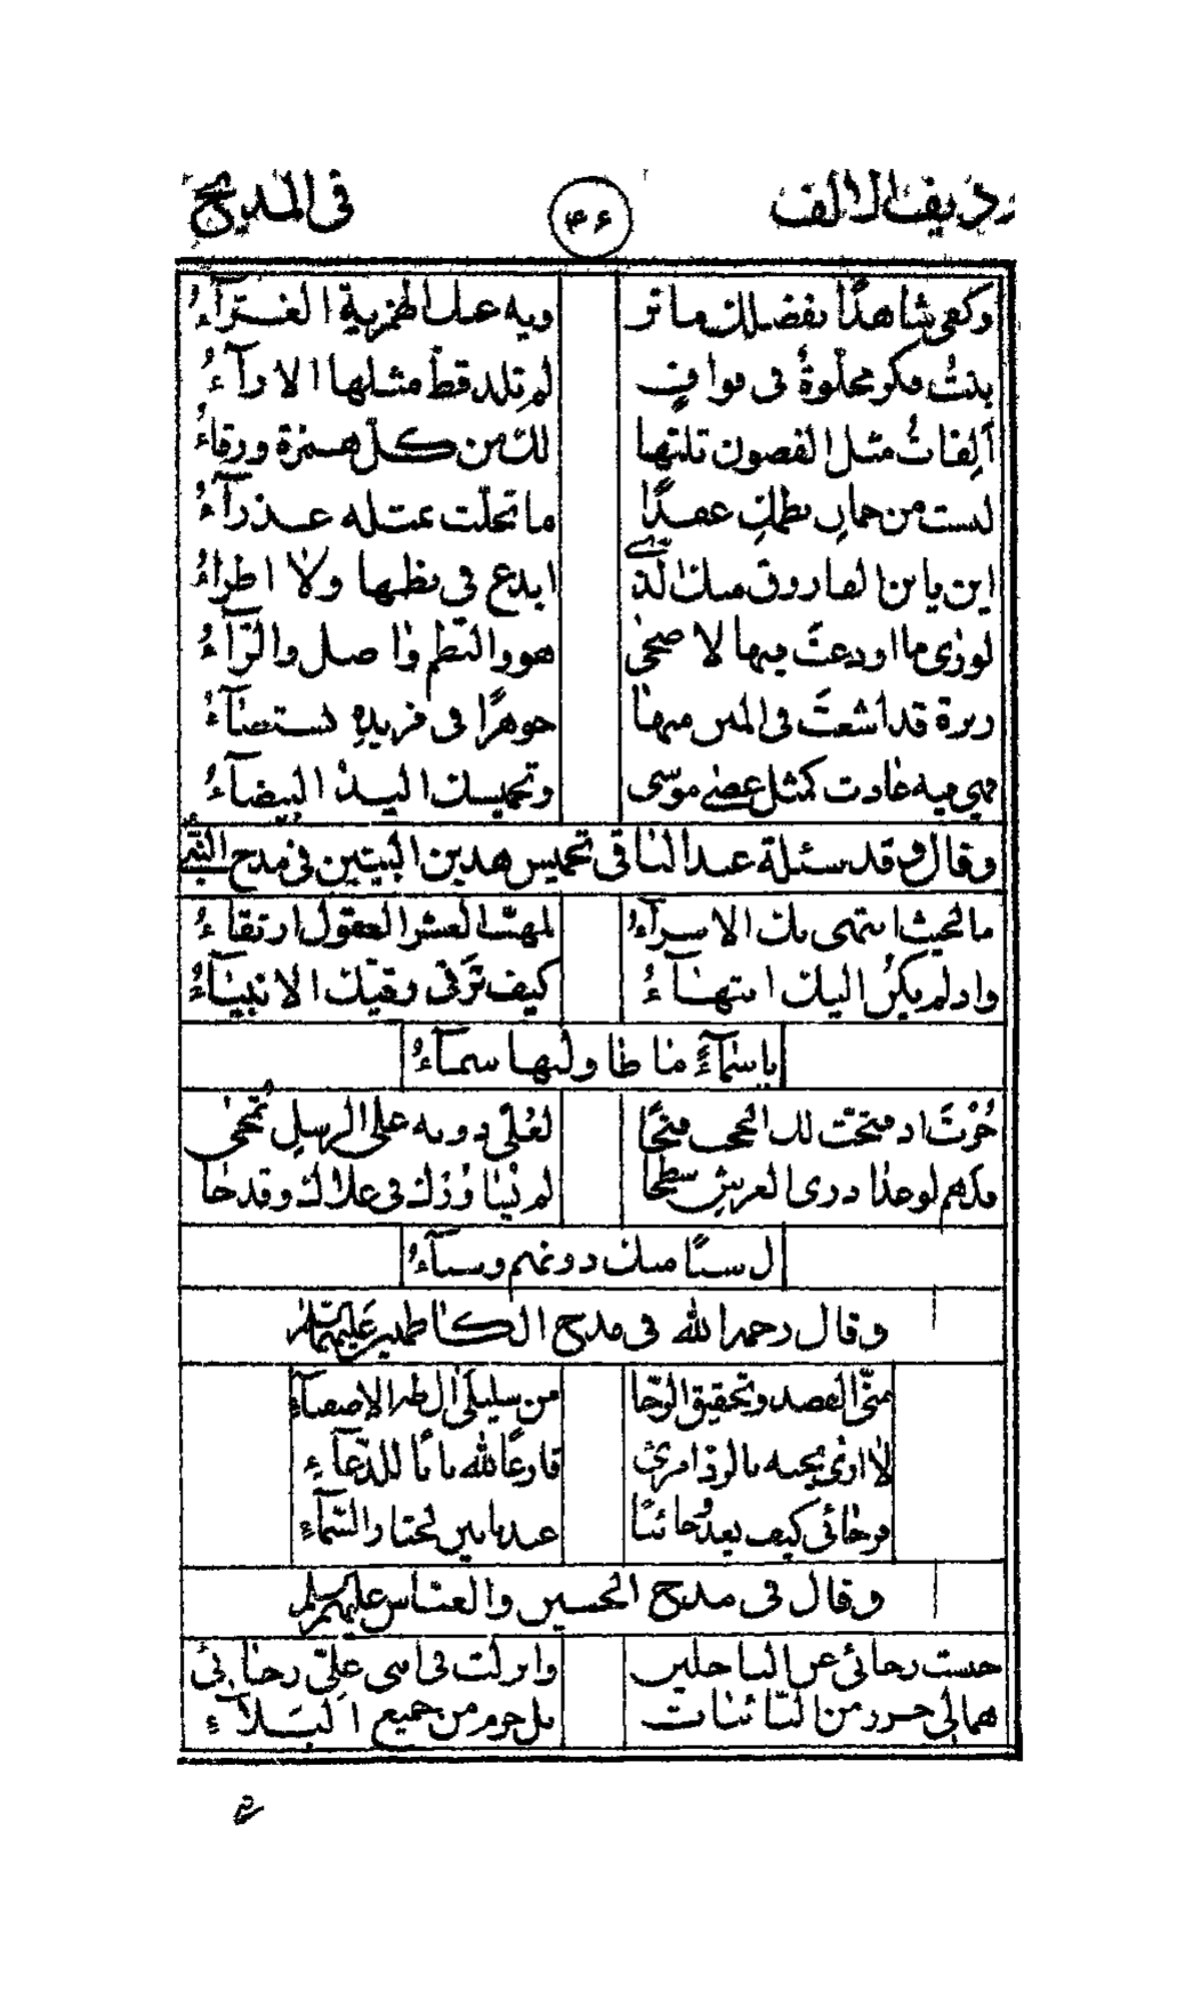 رديف الالف ۴۶ في المديح
وكفى شاهدًا بفضلك ما تر ويه عنك الهمزية الغرآءُ
بنتُ فكر مجلوةٌ في قوافٍ لم تلد قط مثلها الاراآءُ
ألِفاتُ مثل الغصون تلتها لك من كلّ همزة ورقاءُ
لست من جمانِ نظمك عقدًا ما تحلّت بمثله عذرآءُ
اين يا بن الفاروق منك الّذي ابدع في نظمها ولا اطراءُ
لو رأى ما اودعتَ فيها لاضحى هو والنظم واصل والرّآءُ
درة قد اشعتَ في منها جوهرًا في فريدهِ تستضاآءُ
فهي فيه غادت كمثل عصى موسى وتخميسك اليد البيضآءُ
وقال وقد سئله عبد الباقي تخميس هذين البيتين في مدح النبي
ما لحيث انتهى بك الاسرآءُ العشر العقول ارتقاءُ
واذ لم يكن اليك انتهآءُ كيف ترقى رقيّك الانبيآءُ
يا سمآءً ما طاولتها سمآءُ
حُزْتَ اذ فتحت لك الحجب فتحًا لعُلىً دونه على الرسل تمحى
فهم لو غدا ذرى العرش سطحا لم يساوُوك في علاك وقد حا
ل سنًا منك دونهم وسنآءُ
وقال رحمه الله في مدح الكاظمين عليهما السلام
القصد وتحقيق الرجا من سليلى الطهر الاصفيآءِ
لا ارى يجبه بالردّ امرئ قارعًا لله بابًا للدّعآءِ
فرجائي كيف يعدو خائبًا عند بابين لحتار والسّمآءِ
وقال في مدح الحسين والعباس عليهم السلام
حبست رجائي عن الباخلين وانزلت في ابنى عليّ رجائي
هما لي حرز من النّائبات بل حرم من جميع البَلآءِ